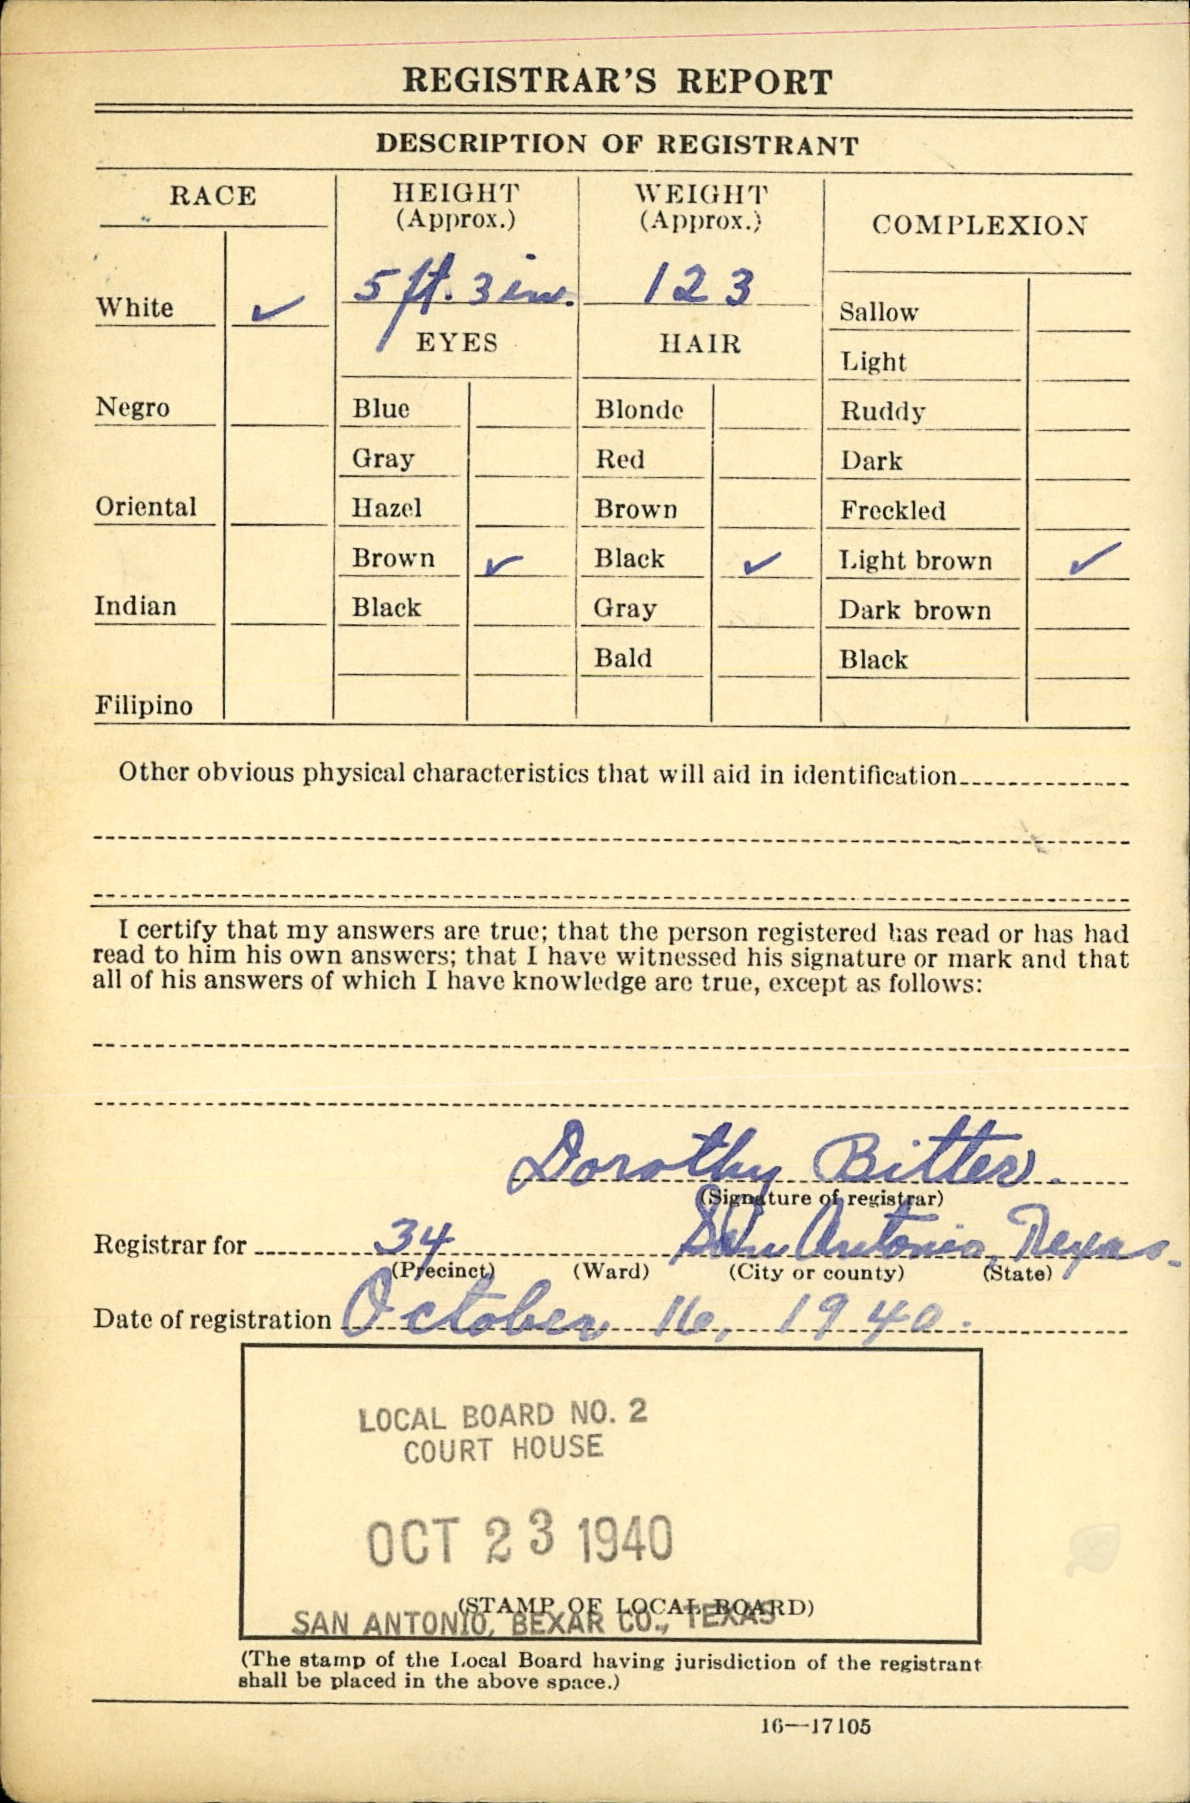 REGISTRAR'S REPORT
DESCRIPTION OF REGISTRANT
RACE
HEIGHT
(Approx.)
WEIGHT
(Approx.)
COMPLEXION
White ✓
5 ft. 3 in.
123
Sallow
EYES
HAIR
Light
Negro
Blue
Blonde
Ruddy
Gray
Red
Dark
Oriental
Hazel
Brown
Freckled
Brown ✓
Black ✓
Light brown ✓
Indian
Black
Gray
Dark brown
Bald
Black
Filipino
Other obvious physical characteristics that will aid in identification
I certify that my answers are true; that the person registered has read or has had
read to him his own answers; that I have witnessed his signature or mark and that
all of his answers of which I have knowledge are true, except as follows:
Dorothy Bitter.
(Signature of registrar)
Registrar for 34 San Antonio, Texas.
(Precinct) (Ward) (City or county) (State)
Date of registration October 16, 1940.
LOCAL BOARD NO. 2
COURT HOUSE
OCT 23 1940
(STAMP OF LOCAL BOARD)
SAN ANTONIO, BEXAR CO., TEXAS
(The stamp of the Local Board having jurisdiction of the registrant
shall be placed in the above space.)
16—17105